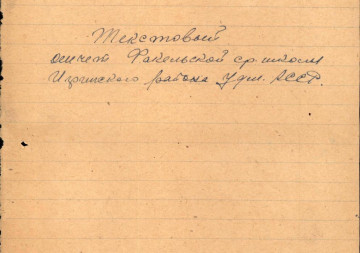 Текстовый
отчет Факельской ср. школы
Игринского района Удм. АССР.